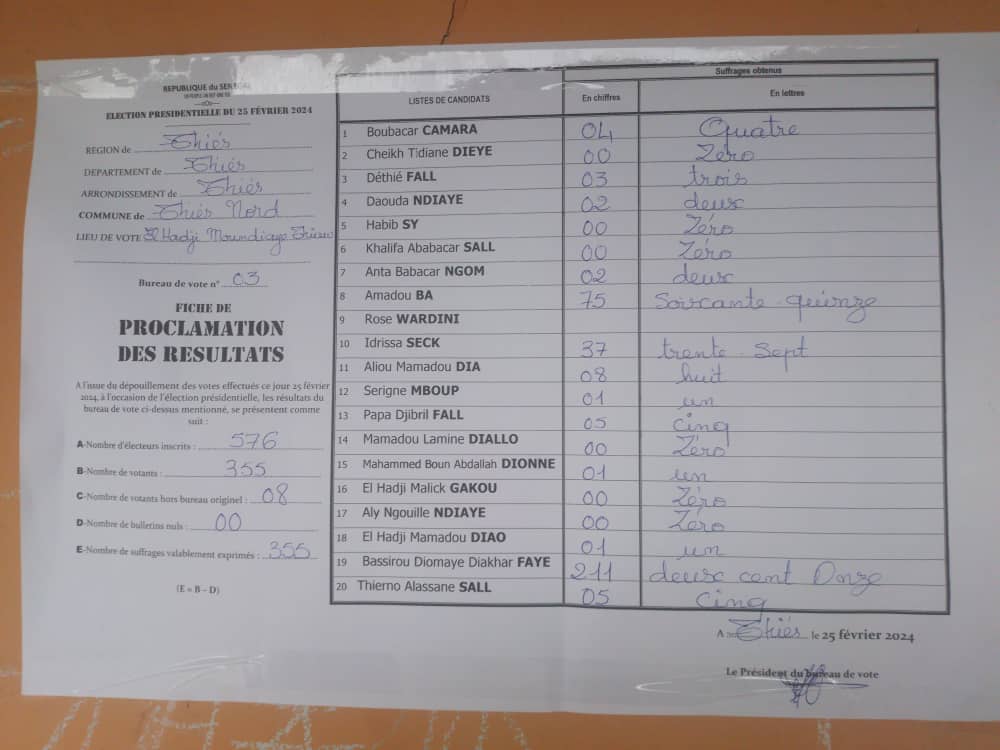 REPUBLIQUE du SENEGAL
ELECTION PRESIDENTIELLE DU 25 FÉVRIER 2024
REGION de Thiés
DEPARTEMENT de Thiés
ARRONDISSEMENT de Thiés
COMMUNE de Thiés Nord
LIEU DE VOTE El Hadji
Bureau de vote n° 03
FICHE DE
PROCLAMATION
DES RESULTATS
A l'issue du dépouillement des votes effectués ce jour 25 février
2024, à l'occasion de l'élection présidentielle, les résultats du
bureau de vote ci-dessus mentionné, se présentent comme
suit :
A-Nombre d'électeurs inscrits : 576
B-Nombre de votants : 355
C-Nombre de votants hors bureau originel : 08
D-Nombre de bullerins nuls : 00
E-Nombre de suffrages valablement exprimés : 355
(E = B – D)
LISTES DE CANDIDATS
Suffrages obtenus
En chiffres
En lettres
1 Boubacar CAMARA 04 Quatre
2 Cheikh Tidiane DIEYE 00 Zéro
3 Déthié FALL 03 trois
4 Daouda NDIAYE 02 deux
5 Habib SY 00 Zéro
6 Khalifa Ababacar SALL 00 Zéro
7 Anta Babacar NGOM 02 deux
8 Amadou BA 75 Soixante-quinze
9 Rose WARDINI
10 Idrissa SECK 37 trente-Sept
11 Aliou Mamadou DIA 08 huit
12 Serigne MBOUP 01 un
13 Papa Djibril FALL 05 Cinq
14 Mamadou Lamine DIALLO 00 Zéro
15 Mahammed Boun Abdallah DIONNE 01 un
16 El Hadji Malick GAKOU 00 Zéro
17 Aly Ngouille NDIAYE 00 Zéro
18 El Hadji Mamadou DIAO 01 un
19 Bassirou Diomaye Diakhar FAYE 211 deux cent Onze
20 Thierno Alassane SALL 05 Cinq
A Thiés le 25 février 2024
Le Président du bureau de vote